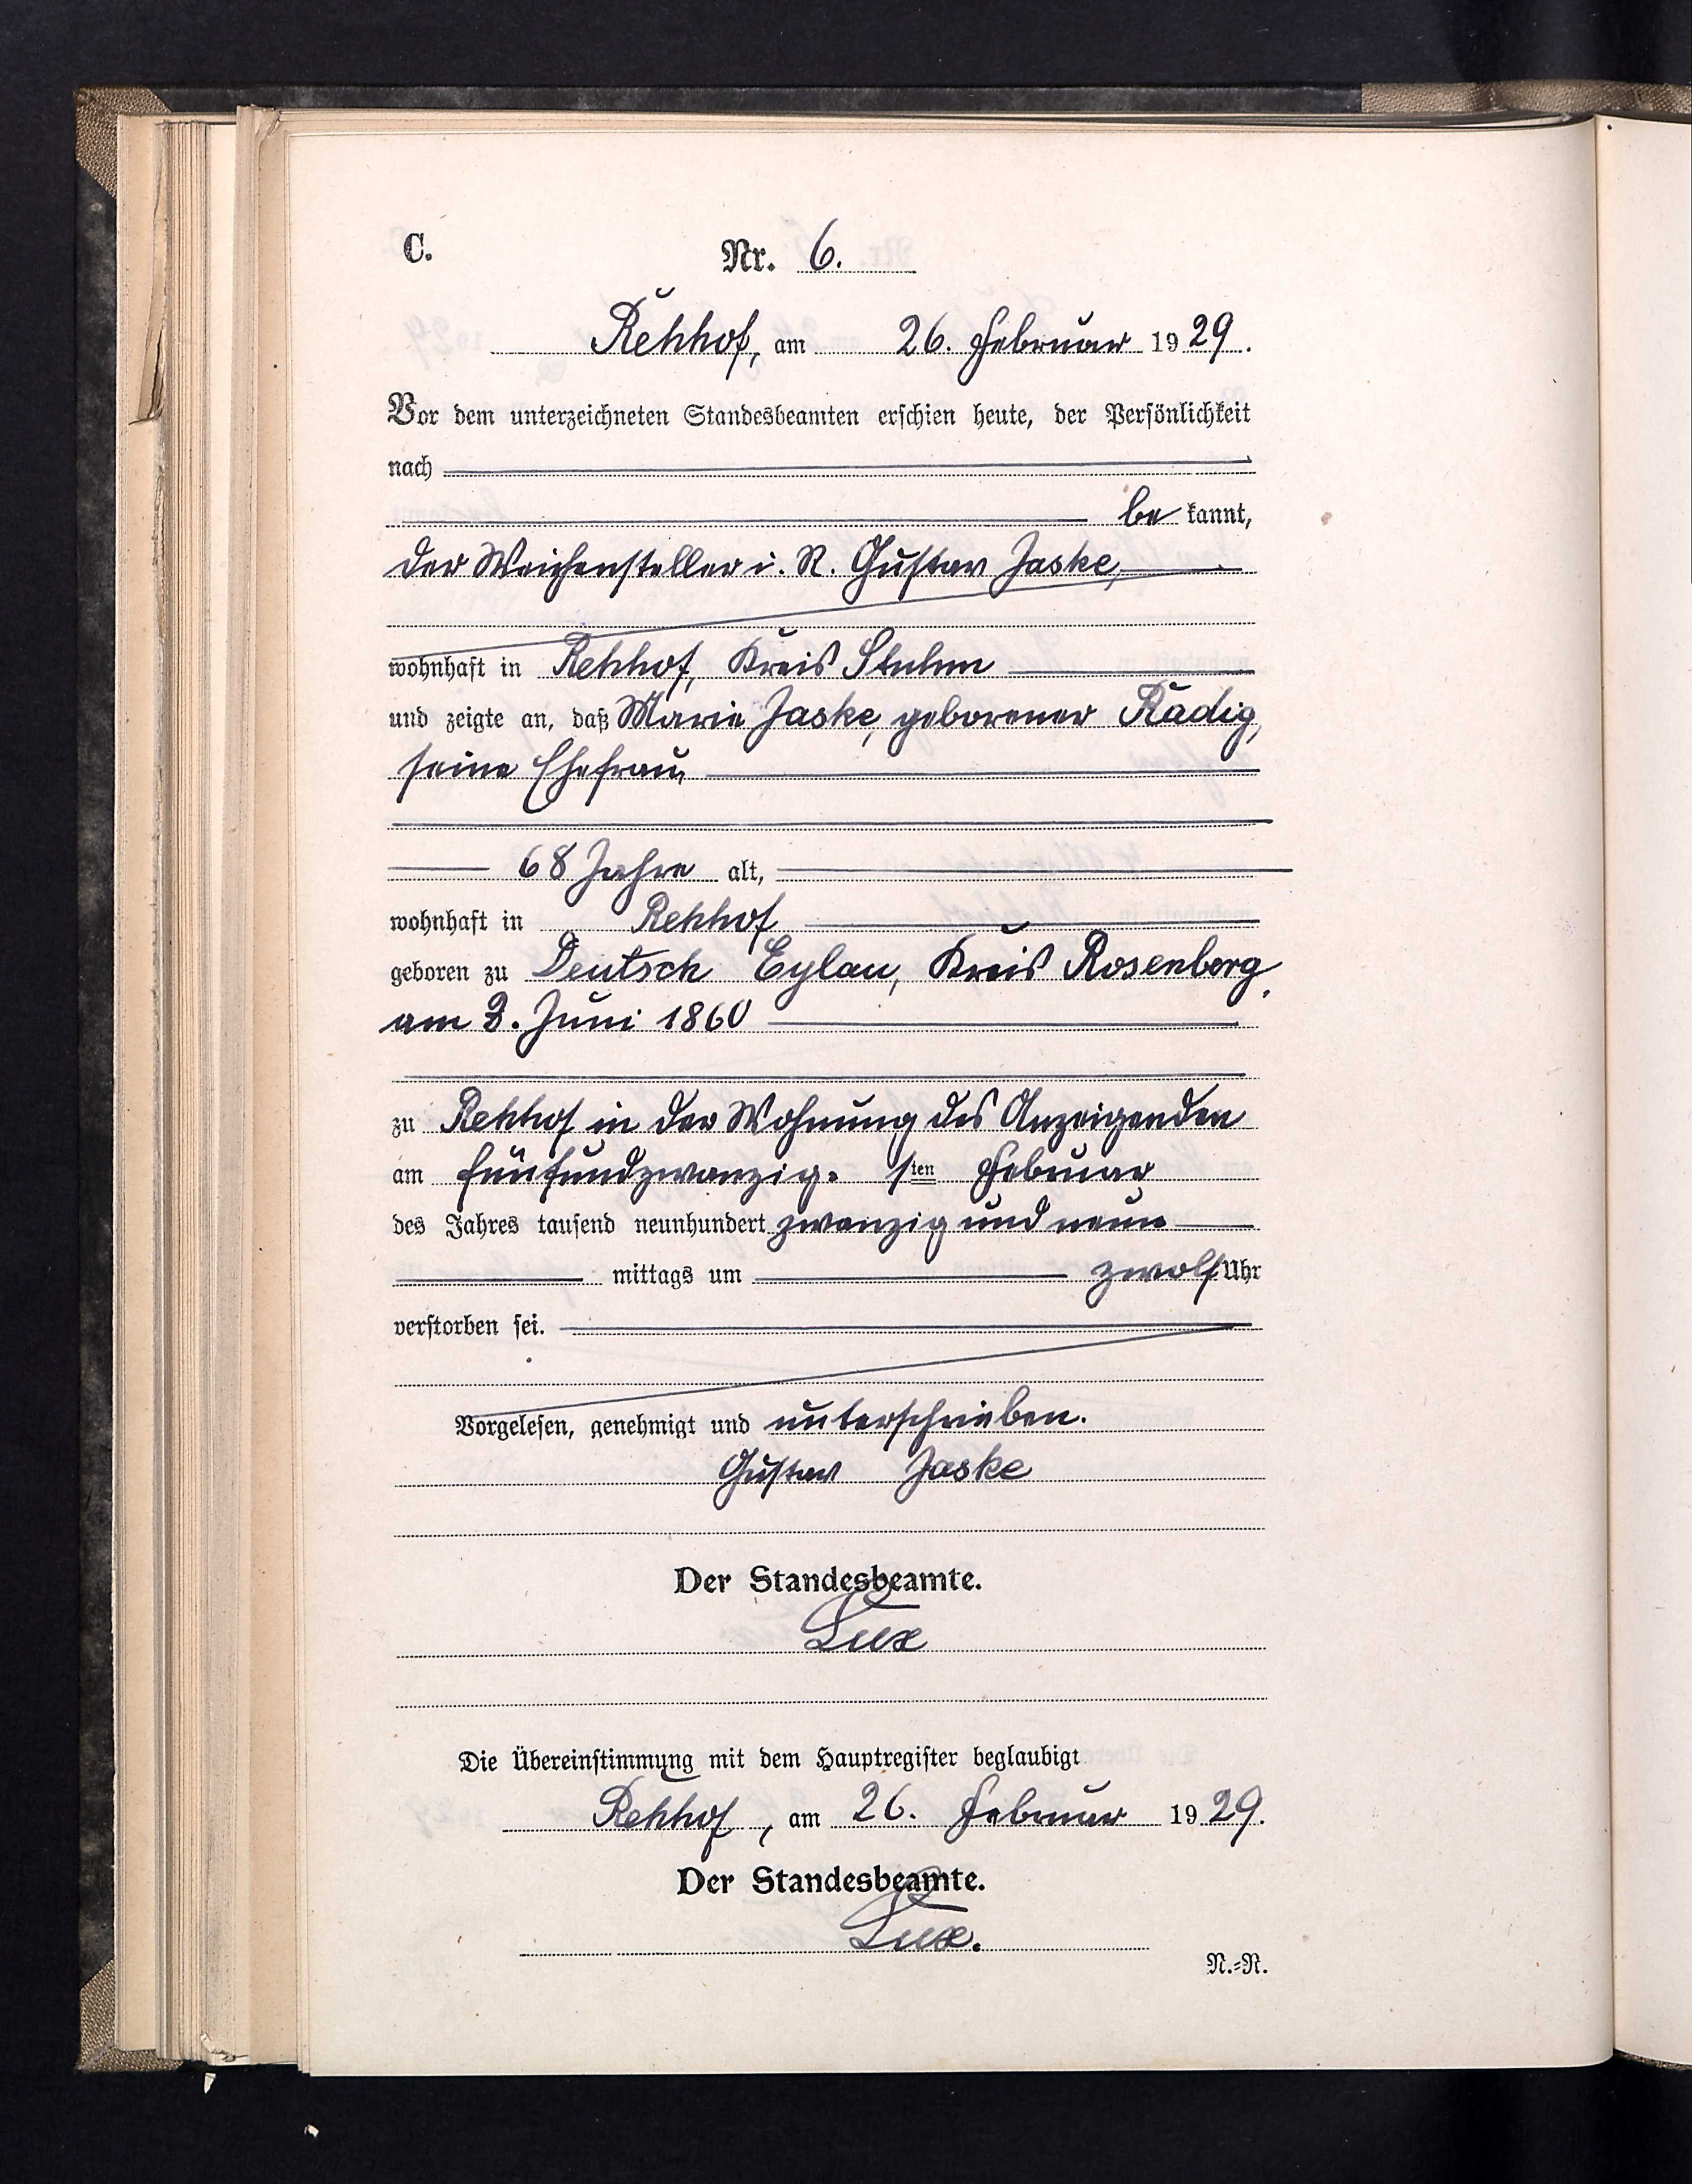 C.
Nr. 6.
Rehhof, am 26. Februar 1929.
Vor dem unterzeichneten Standesbeamten erschien heute, der Persönlichkeit
nach
be kannt,
der Weichensteller i. R. Gustav Jaske,
wohnhaft in Rehhof, Kreis Stuhm
und zeigte an, daß Marie Jaske, geborener Radig,
seine Ehefrau,
68 Jahre alt,
wohnhaft in Rehhof
geboren zu Deutsch Eylau, Kreis Rosenberg,
am Juni 1860
zu Rehhof in der Wohnung des Anzeigenden
am fünfundzwanzig. sten Februar
des Jahres tausend neunhundert zwanzig und neun
mittags um zwölf Uhr
verstorben sei.
Vorgelesen, genehmigt und unterschrieben.
Gustav Jaske
Der Standesbeamte.
Lux
Die Übereinstimmung mit dem Hauptregister beglaubigt
Rehhof, am 26. Februar 1929.
Der Standesbeamte.
Lux.
N.=R.